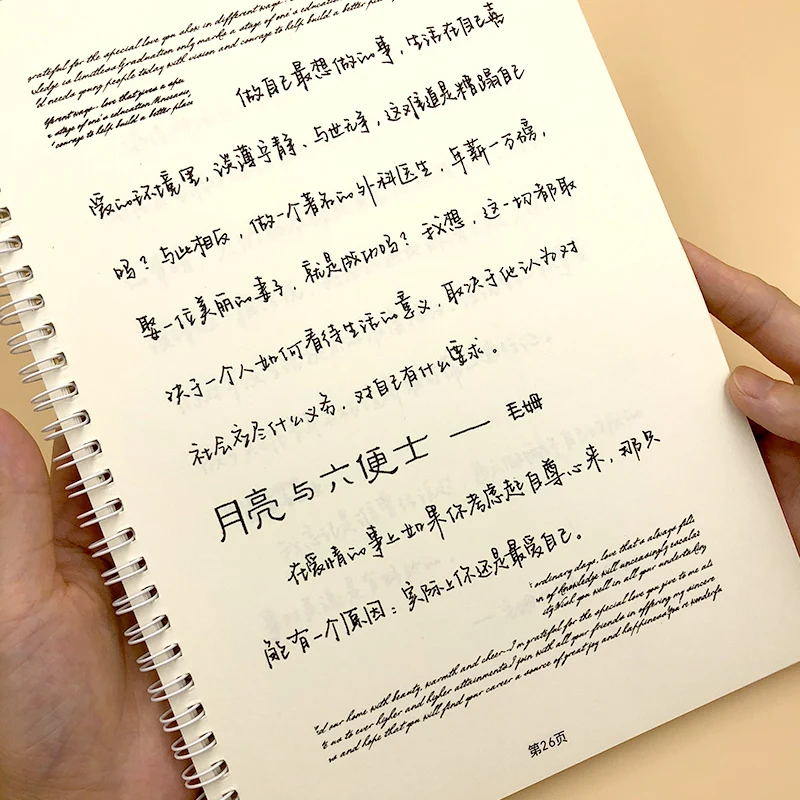 grateful for the special love you show in different ways
wledge is limitless Graduation only marks a stage of one's educatio
'd needs young people today with vision and courage to help build a better
fferent ways love that gives a spe
a stage of one's education
courage to help build a better place
做自己最想做的事，生活在自己喜
爱的环境里，淡薄宁静、与世无争，这难道是糟蹋自己
吗？与此相反，做一个著名的外科医生，年薪一万磅，
娶一位美丽的妻子，就是成功吗？我想，这一切都取
决于一个人如何看待生活的意义，取决于他认为对
社会应尽什么义务，对自己有什么要求。
月亮与六便士 — 毛姆
在爱情的事上如果你考虑起自尊心来，那只
能有一个原因：实际上你还是最爱自己。
ordinary days, love that's always felt
n of Knowledge will unceasingly escalate
Wish you well in all your undertaking
'd our home with beauty, warmth and cheer...I'm grateful for the special love you give to me
us to ever higher and higher attainments I join with all your friends in offering my sincere
and hope that you will find your career a source of great joy and happiness You're wonderfu
第26页